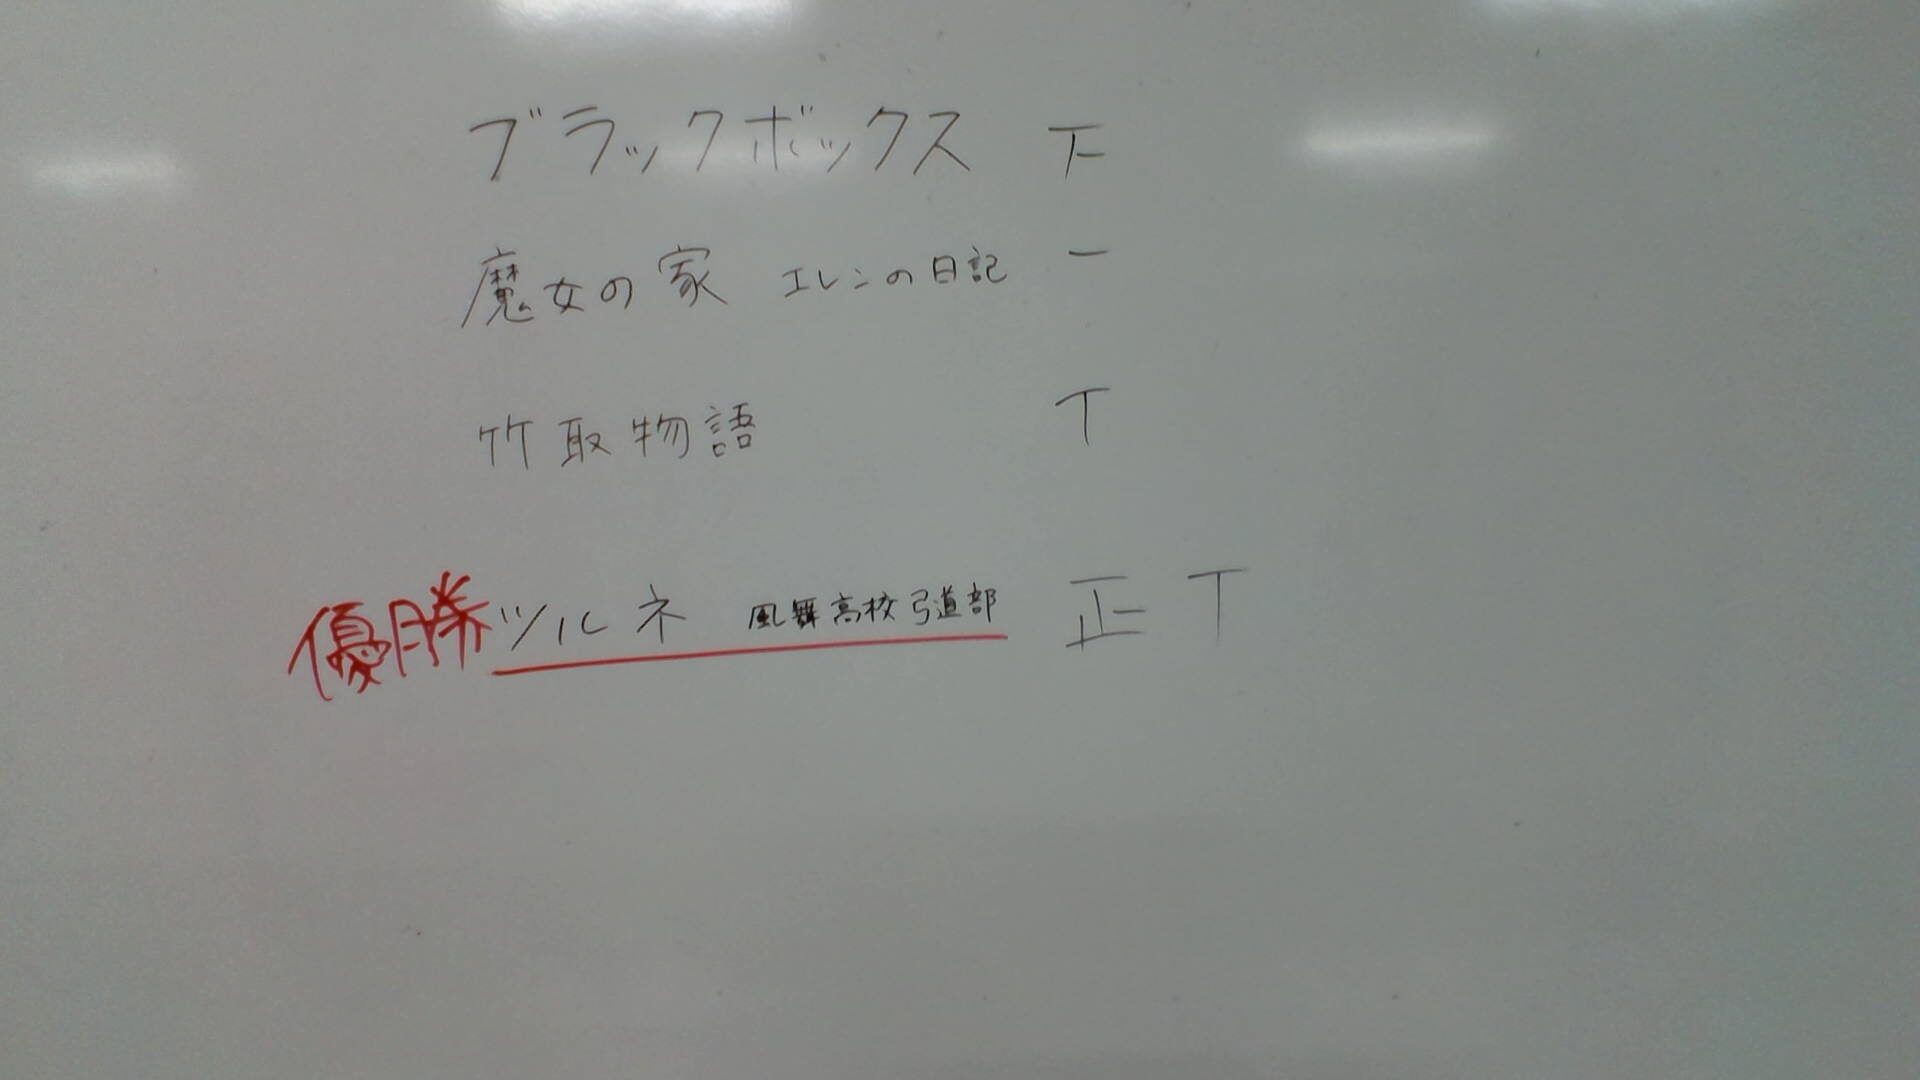 ブラックボックス 下
魔女の家 エレンの日記 一
竹取物語 丅
優勝 ツルネ 風舞高校弓道部 正丅